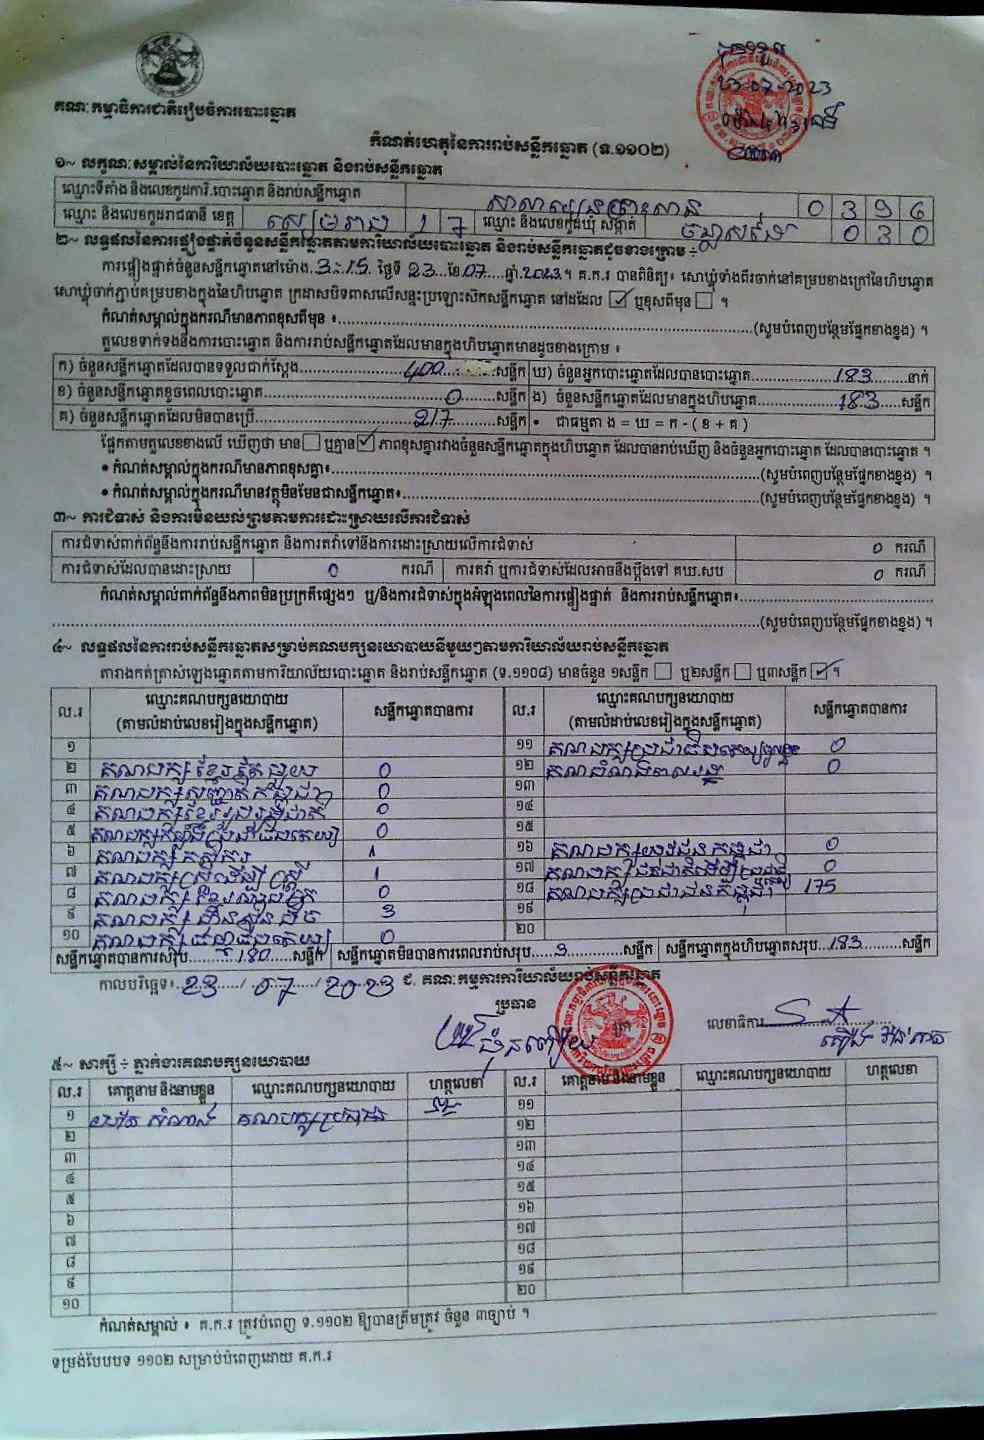 គណៈកម្មាធិការជាតិរៀបចំការបោះឆ្នោត
23-07-2023
កំណត់ហេតុនៃការរាប់សន្លឹកឆ្នោត (ទ.១១០២)
១~ លក្ខណៈសម្គាល់នៃការិយាល័យបោះឆ្នោត និងរាប់សន្លឹកឆ្នោត
ឈ្មោះទីតាំង និងលេខកូដការិ.បោះឆ្នោត និងរាប់សន្លឹកឆ្នោត 0 3 9 6
ឈ្មោះ និងលេខកូដរាជធានី ខេត្ត សៀមរាប 1 7 ឈ្មោះ និងលេខកូដឃុំ សង្កាត់ 0 3 0
២~ លទ្ធផលនៃការផ្ទៀងផ្ទាត់ចំនួនសន្លឹកឆ្នោតតាមការិយាល័យបោះឆ្នោត និងរាប់សន្លឹកឆ្នោតដូចខាងក្រោម ÷
ការផ្ទៀងផ្ទាត់ចំនួនសន្លឹកឆ្នោតនៅម៉ោង 3:15 ថ្ងៃទី 23 ខែ 07 ឆ្នាំ 2023 ។ គ.ក.រ បានពិនិត្យ៖ សោឃ្លុំទាំងពីរចាក់នៅគម្របខាងក្រៅនៃហិបឆ្នោត
សោឃ្លុំចាក់ភ្ជាប់គម្របខាងក្នុងនៃហិបឆ្នោត ក្រដាសបិទពាសលើសន្ទះប្រឡោះសិកសន្លឹកឆ្នោត នៅដដែល ☑ ឬខុសពីមុន ☐ ។
កំណត់សម្គាល់ក្នុងករណីមានភាពខុសពីមុន ៖ (សូមបំពេញបន្ថែមផ្នែកខាងខ្នង) ។
តួលេខទាក់ទងនឹងការបោះឆ្នោត និងការរាប់សន្លឹកឆ្នោតដែលមានក្នុងហិបឆ្នោតមានដូចខាងក្រោម ៖
ក) ចំនួនសន្លឹកឆ្នោតដែលបានទទួលជាក់ស្តែង 400 សន្លឹក ឃ) ចំនួនអ្នកបោះឆ្នោតដែលបានបោះឆ្នោត 183 នាក់
ខ) ចំនួនសន្លឹកឆ្នោតខូចពេលបោះឆ្នោត 0 សន្លឹក ង) ចំនួនសន្លឹកឆ្នោតដែលមានក្នុងហិបឆ្នោត 183 សន្លឹក
គ) ចំនួនសន្លឹកឆ្នោតដែលមិនបានប្រើ 217 សន្លឹក • ជាធម្មតា ង = ឃ = ក - ( ខ + គ )
ផ្អែកតាមតួលេខខាងលើ ឃើញថា មាន ☐ ឬគ្មាន ☑ ភាពខុសគ្នារវាងចំនួនសន្លឹកឆ្នោតក្នុងហិបឆ្នោត ដែលបានរាប់ឃើញ និងចំនួនអ្នកបោះឆ្នោត ដែលបានបោះឆ្នោត ។
• កំណត់សម្គាល់ក្នុងករណីមានភាពខុសគ្នា៖ (សូមបំពេញបន្ថែមផ្នែកខាងខ្នង) ។
• កំណត់សម្គាល់ក្នុងករណីមានវត្ថុមិនមែនជាសន្លឹកឆ្នោត៖ (សូមបំពេញបន្ថែមផ្នែកខាងខ្នង) ។
៣~ ការជំទាស់ និងការមិនយល់ព្រមតាមការដោះស្រាយលើការជំទាស់
ការជំទាស់ពាក់ព័ន្ធនឹងការរាប់សន្លឹកឆ្នោត និងការតវ៉ាទៅនឹងការដោះស្រាយលើការជំទាស់ 0 ករណី
ការជំទាស់ដែលបានដោះស្រាយ 0 ករណី ការតវ៉ា ឬការជំទាស់ដែលអាចនឹងប្តឹងទៅ គឃ.សប 0 ករណី
កំណត់សម្គាល់ពាក់ព័ន្ធនឹងភាពមិនប្រក្រតីផ្សេងៗ ឬ/និងការជំទាស់ក្នុងអំឡុងពេលនៃការផ្ទៀងផ្ទាត់ និងការរាប់សន្លឹកឆ្នោត៖
(សូមបំពេញបន្ថែមផ្នែកខាងខ្នង) ។
៤~ លទ្ធផលនៃការរាប់សន្លឹកឆ្នោតសម្រាប់គណបក្សនយោបាយនីមួយៗតាមការិយាល័យរាប់សន្លឹកឆ្នោត
តារាងកត់ត្រាសំឡេងឆ្នោតតាមការិយាល័យបោះឆ្នោត និងរាប់សន្លឹកឆ្នោត (ទ.១១០៨) មានចំនួន ១សន្លឹក ☐ ឬ២សន្លឹក ☐ ឬ៣សន្លឹក ☑ ។
ល.រ ឈ្មោះគណបក្សនយោបាយ (តាមលំដាប់លេខរៀងក្នុងសន្លឹកឆ្នោត) សន្លឹកឆ្នោតបានការ ល.រ ឈ្មោះគណបក្សនយោបាយ (តាមលំដាប់លេខរៀងក្នុងសន្លឹកឆ្នោត) សន្លឹកឆ្នោតបានការ
១ ១១ គណបក្ស 0
២ គណបក្សខ្មែរតែមួយ 0 ១២ 0
៣ គណបក្សសញ្ជាតិកម្ពុជា 0 ១៣
៤ គណបក្សខ្មែររួបរួមជាតិ 0 ១៤
៥ គណបក្ស 0 ១៥
៦ គណបក្សកសិករ 1 ១៦ គណបក្សយុវជនកម្ពុជា 0
៧ គណបក្សស្រីដើម្បីស្ត្រី 1 ១៧ គណបក្ស 0
៨ គណបក្ស 0 ១៨ គណបក្សប្រជាជនកម្ពុជា 175
៩ គណបក្សហ្វ៊ុនស៊ិនប៉ិច 3 ១៩
១០ គណបក្ស 0 ២០
សន្លឹកឆ្នោតបានការសរុប 180 សន្លឹក សន្លឹកឆ្នោតមិនបានការពេលរាប់សរុប 3 សន្លឹក សន្លឹកឆ្នោតក្នុងហិបឆ្នោតសរុប 183 សន្លឹក
កាលបរិច្ឆេទ៖ 23 / 07 / 2023 ជ. គណៈកម្មការការិយាល័យរាប់សន្លឹកឆ្នោត
ប្រធាន
លេខាធិការ
៥~ សាក្សី ÷ ភ្នាក់ងារគណបក្សនយោបាយ
ល.រ គោត្តនាម និងនាមខ្លួន ឈ្មោះគណបក្សនយោបាយ ហត្ថលេខា ល.រ គោត្តនាម និងនាមខ្លួន ឈ្មោះគណបក្សនយោបាយ ហត្ថលេខា
១ គណបក្សប្រជាជន ១១
២ ១២
៣ ១៣
៤ ១៤
៥ ១៥
៦ ១៦
៧ ១៧
៨ ១៨
៩ ១៩
១០ ២០
កំណត់សម្គាល់ ៖ គ.ក.រ ត្រូវបំពេញ ទ.១១០២ ឱ្យបានត្រឹមត្រូវ ចំនួន ៣ច្បាប់ ។
ទម្រង់បែបបទ ១១០២ សម្រាប់បំពេញដោយ គ.ក.រ